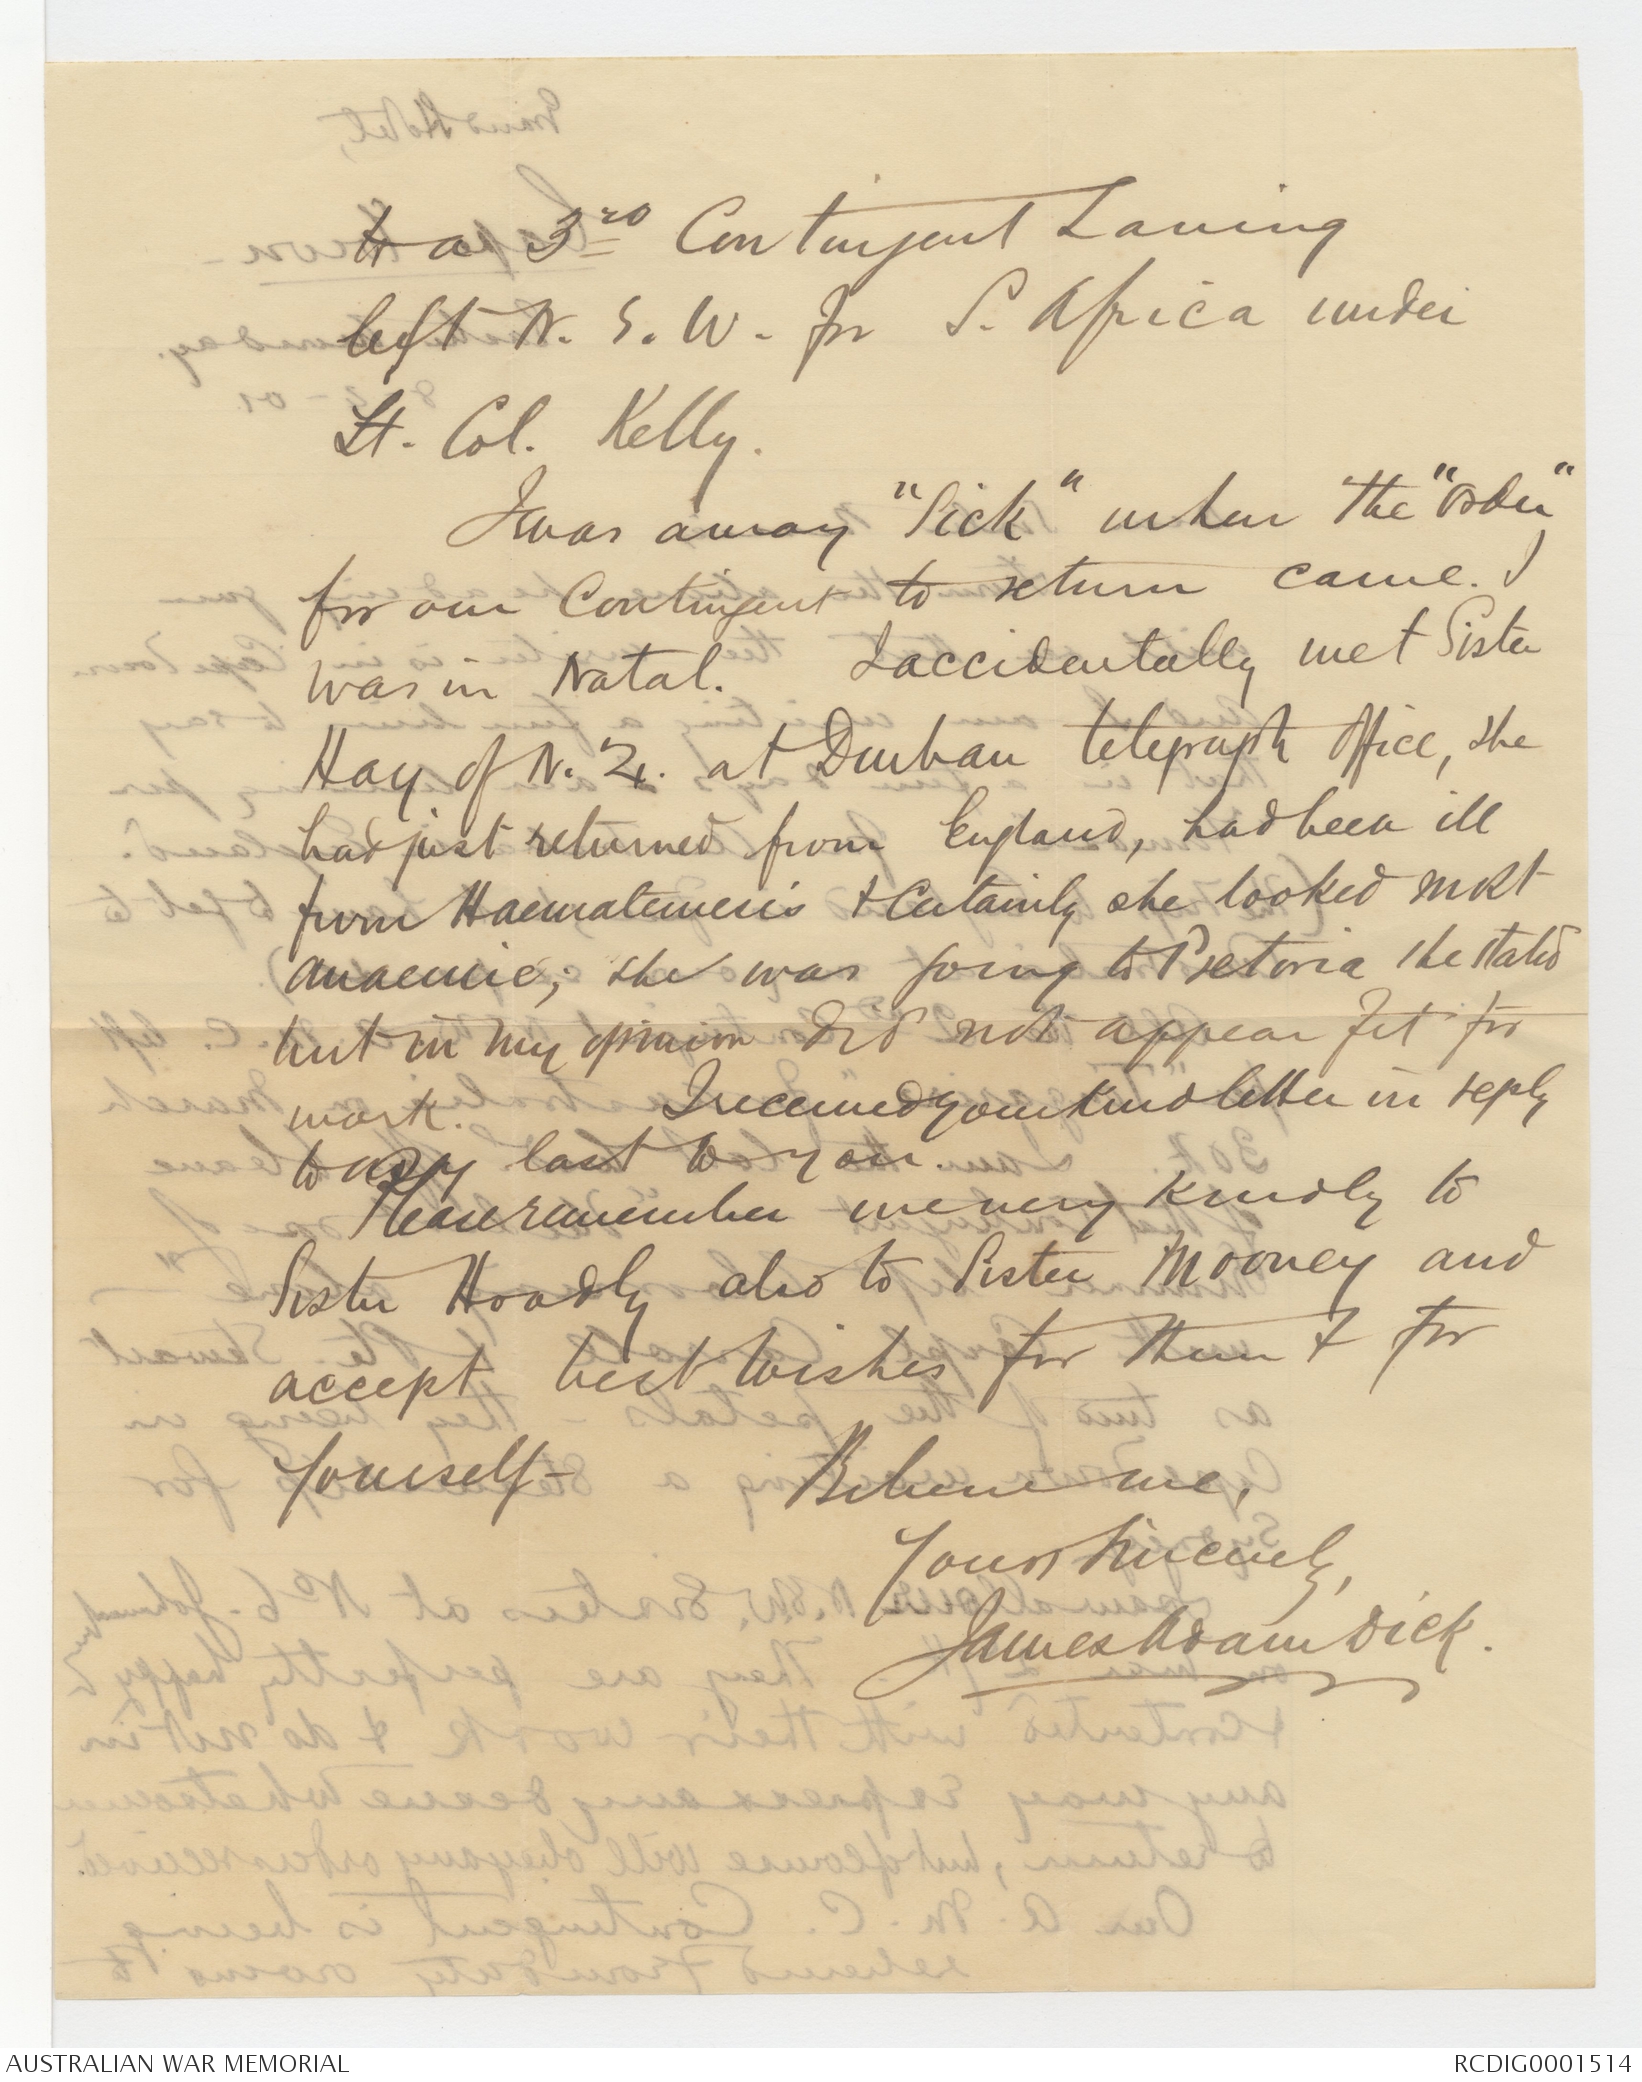 to a 3rd Contingent having
left N. S. W. for S. Africa under
Lt. Col. Kelly.
I was away "Sick" when the "Order"
for our Contingent to return came. I
was in Natal. I accidentally met Sister
Hay of N. Z. at Durban telegraph Office, she
had just returned from England, had been ill
from Haematemesis & Certainly she looked most
anaemic; she was going to Pretoria she stated
but in my opinion did not appear fit for
work. I received your kind letter in reply
to my last to you.
Please remember me very kindly to
Sister Hoadly also to Sister Mooney and
accept best wishes for them & for
Yourself - Believe me,
Yours Sincerely,
James Adam Dick.
AUSTRALIAN WAR MEMORIAL
RCDIG0001514